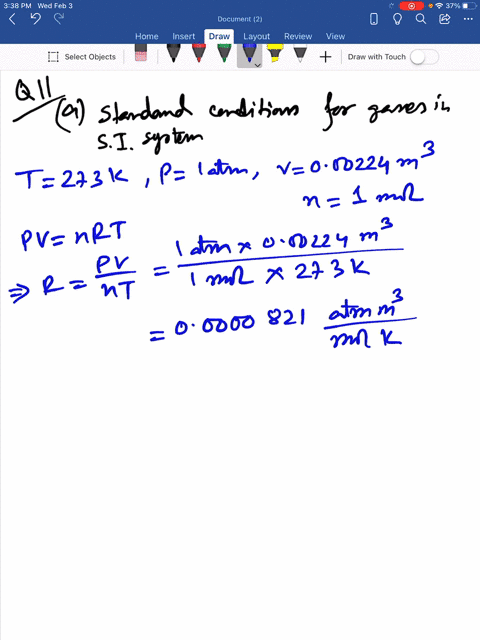 3:38 PM Wed Feb 3
37%
Document (2)
Home Insert Draw Layout Review View
Select Objects
Draw with Touch
Q11
(a) Standard conditions for gases in
S.I. system
T = 273 K , P = 1 atm, V = 0.00224 m³
n = 1 mol
PV = nRT
⇒ R = PV/nT = 1 atm × 0.00224 m³ / 1 mol × 273 K
= 0.0000 821 atm m³ / mol K